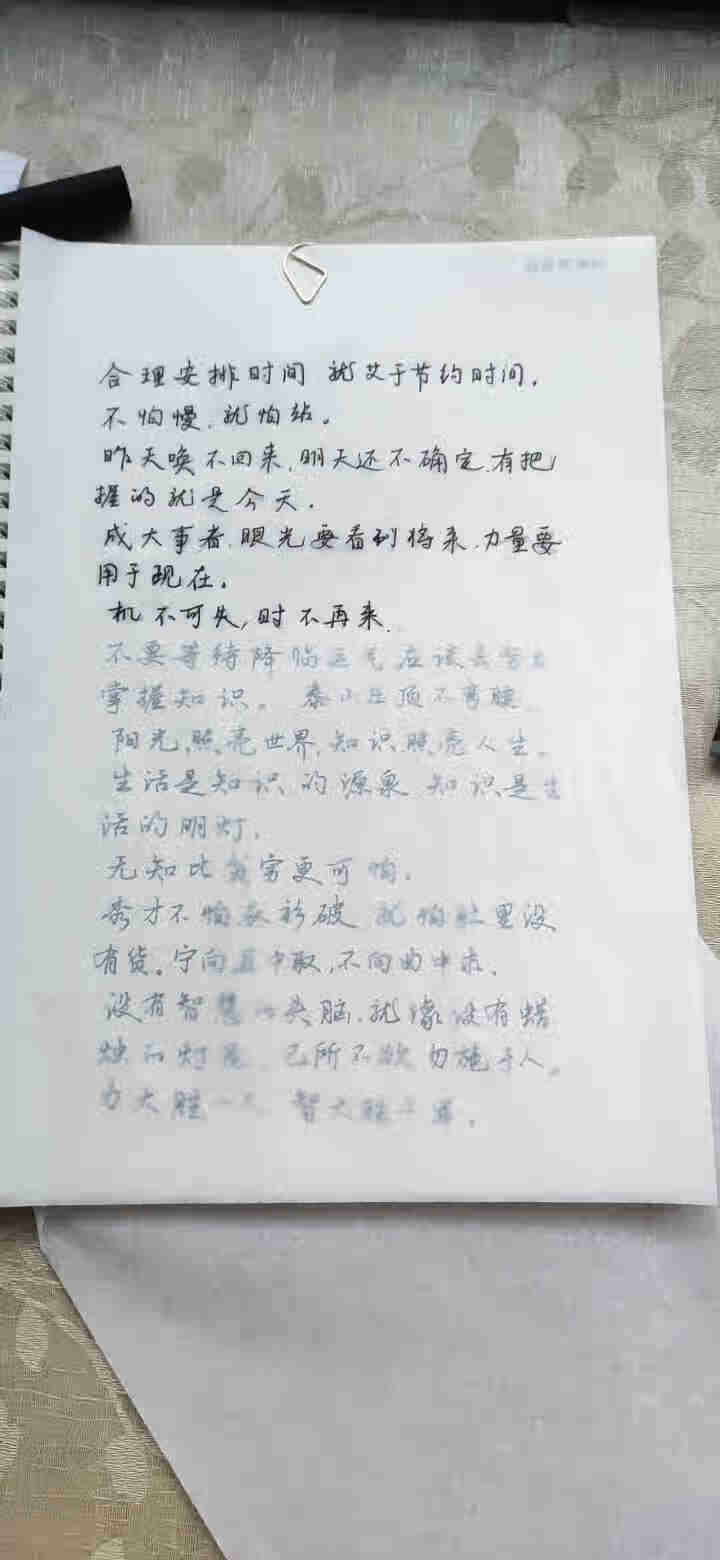 合理安排时间 就艾于节约时间。
不怕慢、就怕站。
昨天唤不回来、明天还不确定、有把
握的就是今天。
成大事者、眼光要看到将来、力量要
用于现在。
机不可失,时不再来
不要等待降临运气应该去
掌握知识。泰山压顶不弯腰
阳光照亮世界,知识照亮人生。
生活是知识的源泉 知识是生
活的明灯。
无知比贫穷更可怕。
秀才不怕衣衫破 就怕肚里没
有货。宁向直中取,不向曲中求。
没有智慧的头脑、就像没有蜡
烛的灯笼 己所不欲勿施于人。
力大胜一人 智大胜千军。